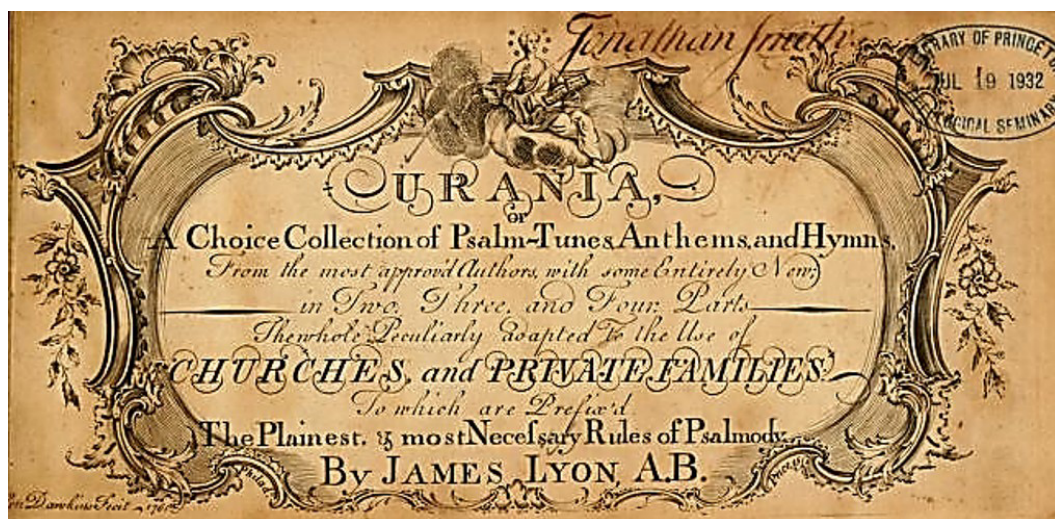 Jonathan Smith
LIBRARY OF PRINCETON
JUL 19 1932
THEOLOGICAL SEMINARY
URANIA,
or
A Choice Collection of Psalm-Tunes, Anthems, and Hymns,
From the most approv'd Authors, with some Entirely New;
in Two, Three, and Four, Parts
The whole Peculiarly adapted To the Use of
CHURCHES, and PRIVATE FAMILIES
To which are Prefix'd
The Plainest, & most Neceſsary Rules of Psalmody.
By JAMES LYON, A.B.
Dawkins Fecit 1761